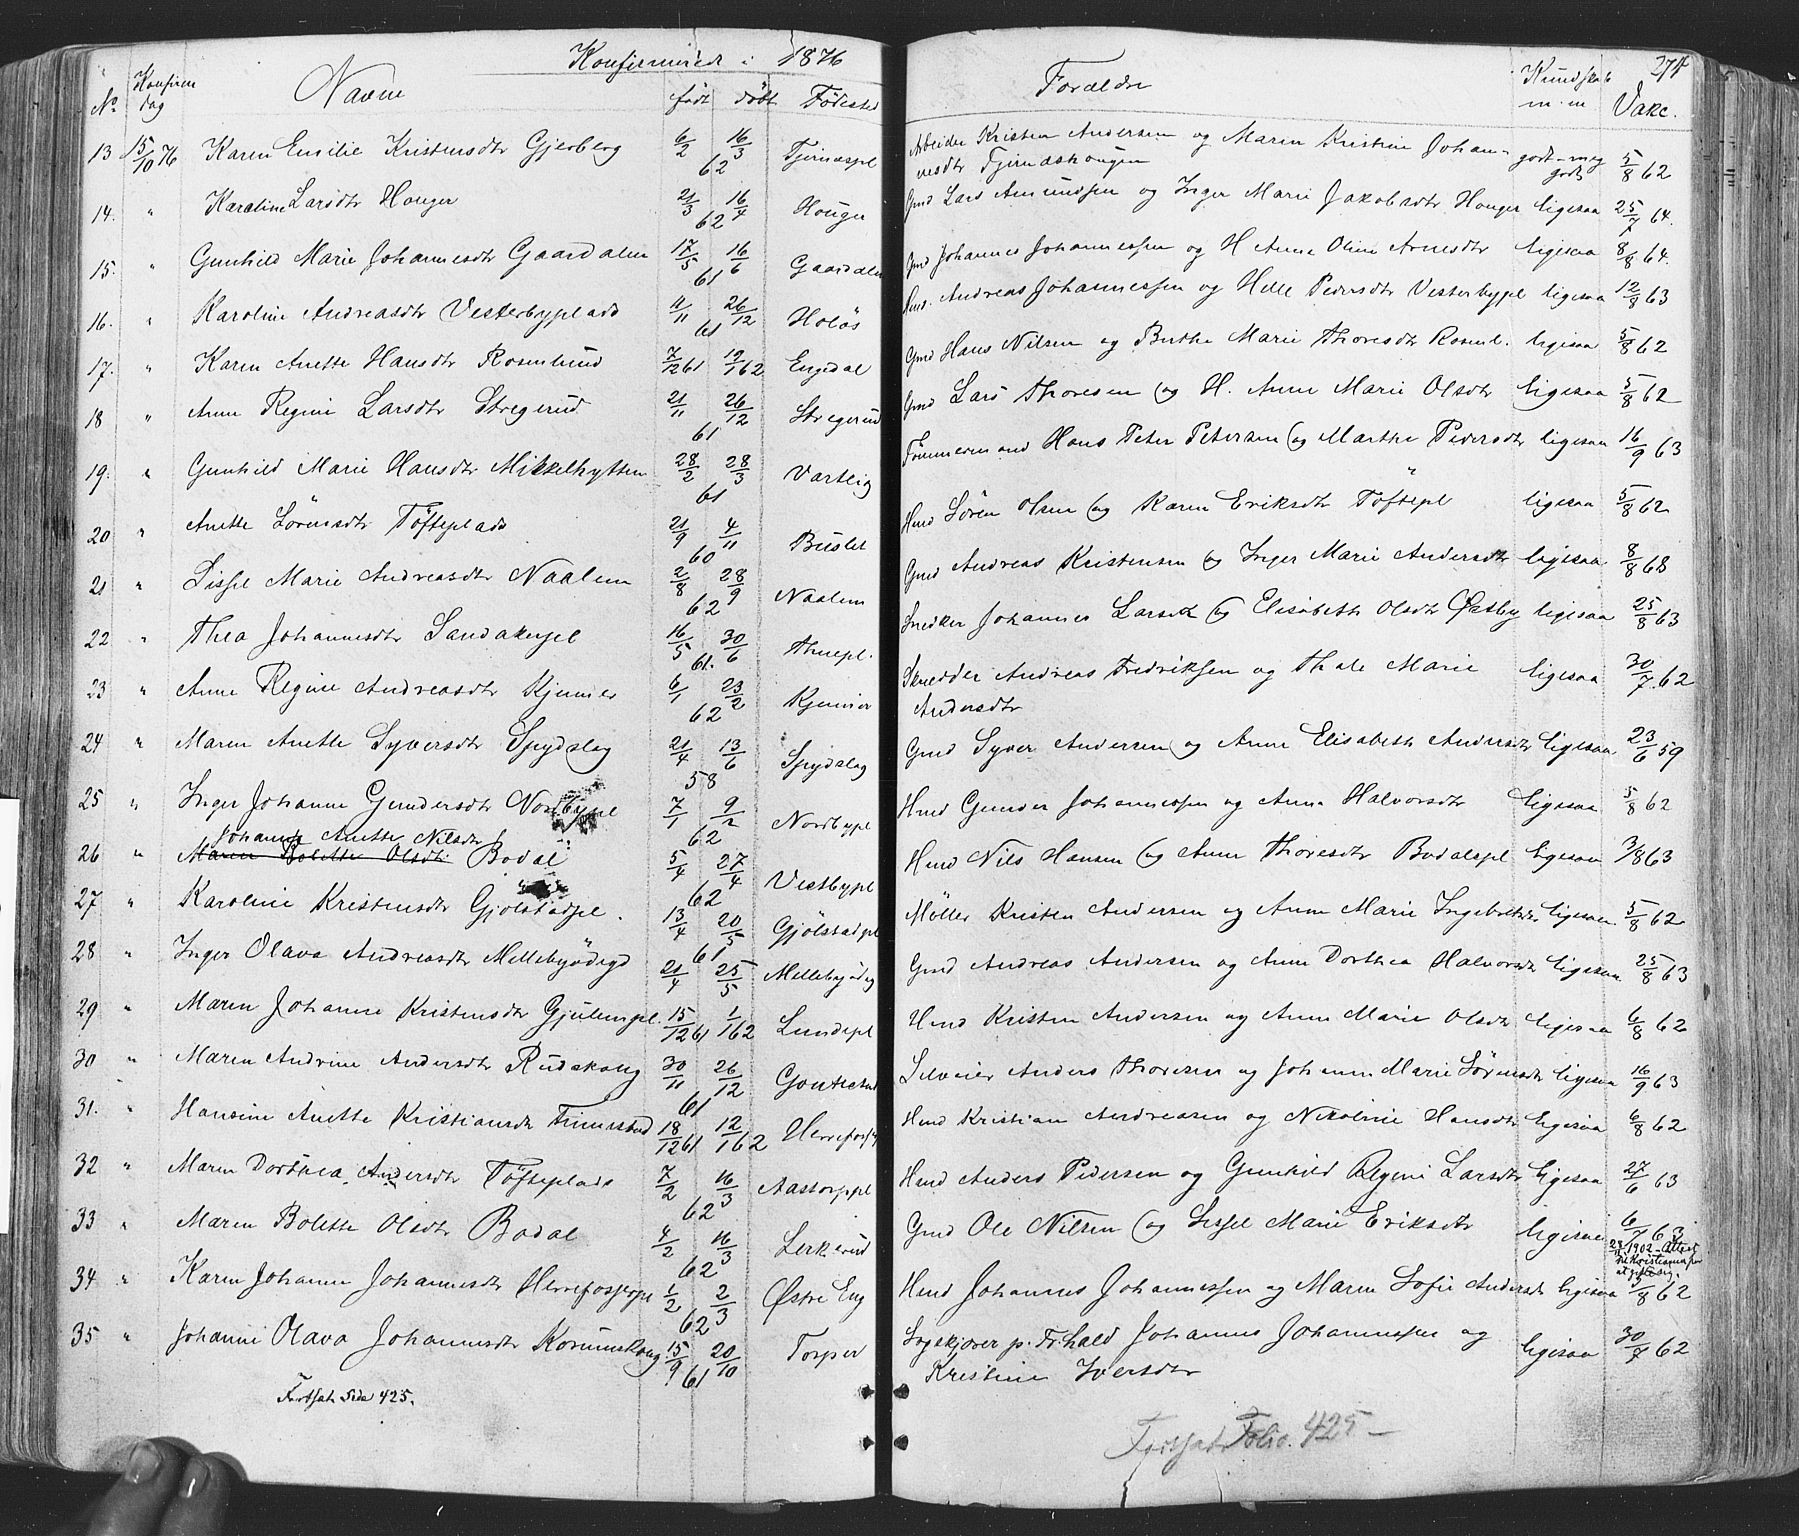 Konfirmerede i 1876
274
No Konfirm dag Navne født døbt Fødested Forældre Kundskab m.m Vakc.
13 15/10 76 Karen Emilie Kristensdtr Gjerberg 6/2 16/3 62 Arbeider Kristen Andersen og Maren Kristine Johan- godt-meg godt 5/8 62
nesdtr
14. " Karoline Larsdtr Houger 21/3 16/4 62 Houger Gmd Lars Amundsen og Inger Marie Jakobsdtr Houger ligesaa 25/7 64.
15. " Gunhild Marie Johannesdtr Gaardalen 17/5 16/6 61 Gaardalen Gmd Johannes Johannessen og H Anne Oline Arnesdtr ligesaa 8/8 64.
16. " Karoline Andreasdtr Vesterbyplads 11/11 26/12 61 Holøs Hmd. Andreas Johannessen og Helle Pedersdtr Vesterbypl ligesaa 12/8 63
17. " Karen Anette Hansdtr Rosenlund 7/12 61 19/1 62 Engdal Gmd Hans Nilsen og Berthe Marie Thoresdtr Rosenl. ligesaa 5/8 62
18 " Anne Regine Larsdtr Stregerud 21/11 26/12 61 Stregerud Gmd Lars Thoresen og H. Anne Marie Olsdtr ligesaa 5/8 62
19. " Gunhild Marie Hansdtr Mikkelhytten 28/2 28/3 61 Varteig Tømmermand Hans Peter Petersen og Marthe Pedersdtr ligesaa 16/9 63
20 " Anette Sörensdtr Töfteplads 21/9 4/11 60 Buslet Hmd Sören Olsen og Karen Eriksdtr Töftepl ligesaa 5/8 62
21 " Sissel Marie Andreasdtr Naalum 2/8 28/9 62 Naalum Gmd Andreas Kristensen og Inger Marie Andersdtr ligesaa 8/8 68
22 " Thea Johannesdtr Sandakerpl 16/5 30/6 61. Thunepl. Snedker Johannes Larsen og Elisabeth Olsdtr Østby ligesaa 25/8 63
23 " Anne Regine Andreasdtr Kjenner 6/1 23/2 62 Kjenner Skredder Andreas Fredriksen og Thale Marie ligesaa 30/7. 62
Andersdtr
24 " Maren Anette Syversdtr Spydslag 21/4 13/6 58 Spydslag Gmd Syver Andersen og Anne Elisabeth Andersdtr ligesaa 23/6 59
25 " Inger Johanne Gundersdtr Nordbypl 7/1 9/2 62 Nordbypl Hmd Gunder Johannessen og Anne Halvorsdtr ligesaa 5/8 62
Johanne Anette Nilsdtr
26 " Maren Bolette Olsdtr Bodal 5/4 27/4 62 Vestbypl Hmd Nils Hansen og Anne Thoresdtr Bodalspl ligesaa 3/8 63
27 " Karoline Kristensdtr Gjölstadpl. 13/4 20/5 61 Gjölstadpl Møller Kristen Andersen og Anne Marie Ingebretsdtr ligesaa 5/8 62
28 " Inger Olava Andreasdtr Mellebyödegd 21/4 25/5 Mellebyödeg Gmd Andreas Andersen og Anne Dorthea Halvorsdtr ligesaa 25/8 63
29 " Maren Johanne Kristensdtr Gjulempl. 15/12 61 1/1 62 Lundepl Hmd Kristen Andersen og Anne Marie Olsdtr ligesaa 6/8 62
30 " Maren Andrine Andersdtr Rudskoug 30/11 26/12 61 Anders Thoresen og Johanne Marie Sörensdtr ligesaa 16/9 63
31. " Hansine Anette Kristiansdtr 18/12 61 12/1 62 Herrefossp Hmd Kristian Andreasen og Nikoline Hansdtr ligesaa 6/8 62
32 " Maren Dorthea Andersdtr Töfteplads 7/2 16/3 62 Aastorppl Hmd Anders Pedersen og Gunhild Regine Larsdtr ligesaa 27/6 63
33 " Maren Bolette Olsdtr Bodal 4/2 16/3 62 Lerkerud Gmd Ole Nilsen og Sissel Marie Eriksdtr ligesaa 6/7 63
1902 - Attest til Kristiania for at gifte sig.
34 " Karen Johanne Johannesdtr Herrefosspl 1/2 2/3 62 Østre Eng Hmd Johannes Johannessen og Maren Sofie Andersdtr ligesaa 5/8 62
35 " Johanne Olava Johannesdtr Korumskoug 15/9 20/10 61 Torper Sagskjører p. Fr.hald Johannes Johannessen og ligesaa 30/7 62
Kristine Iversdtr
Fortsat side 425.
Fortsat Folio. 425 —